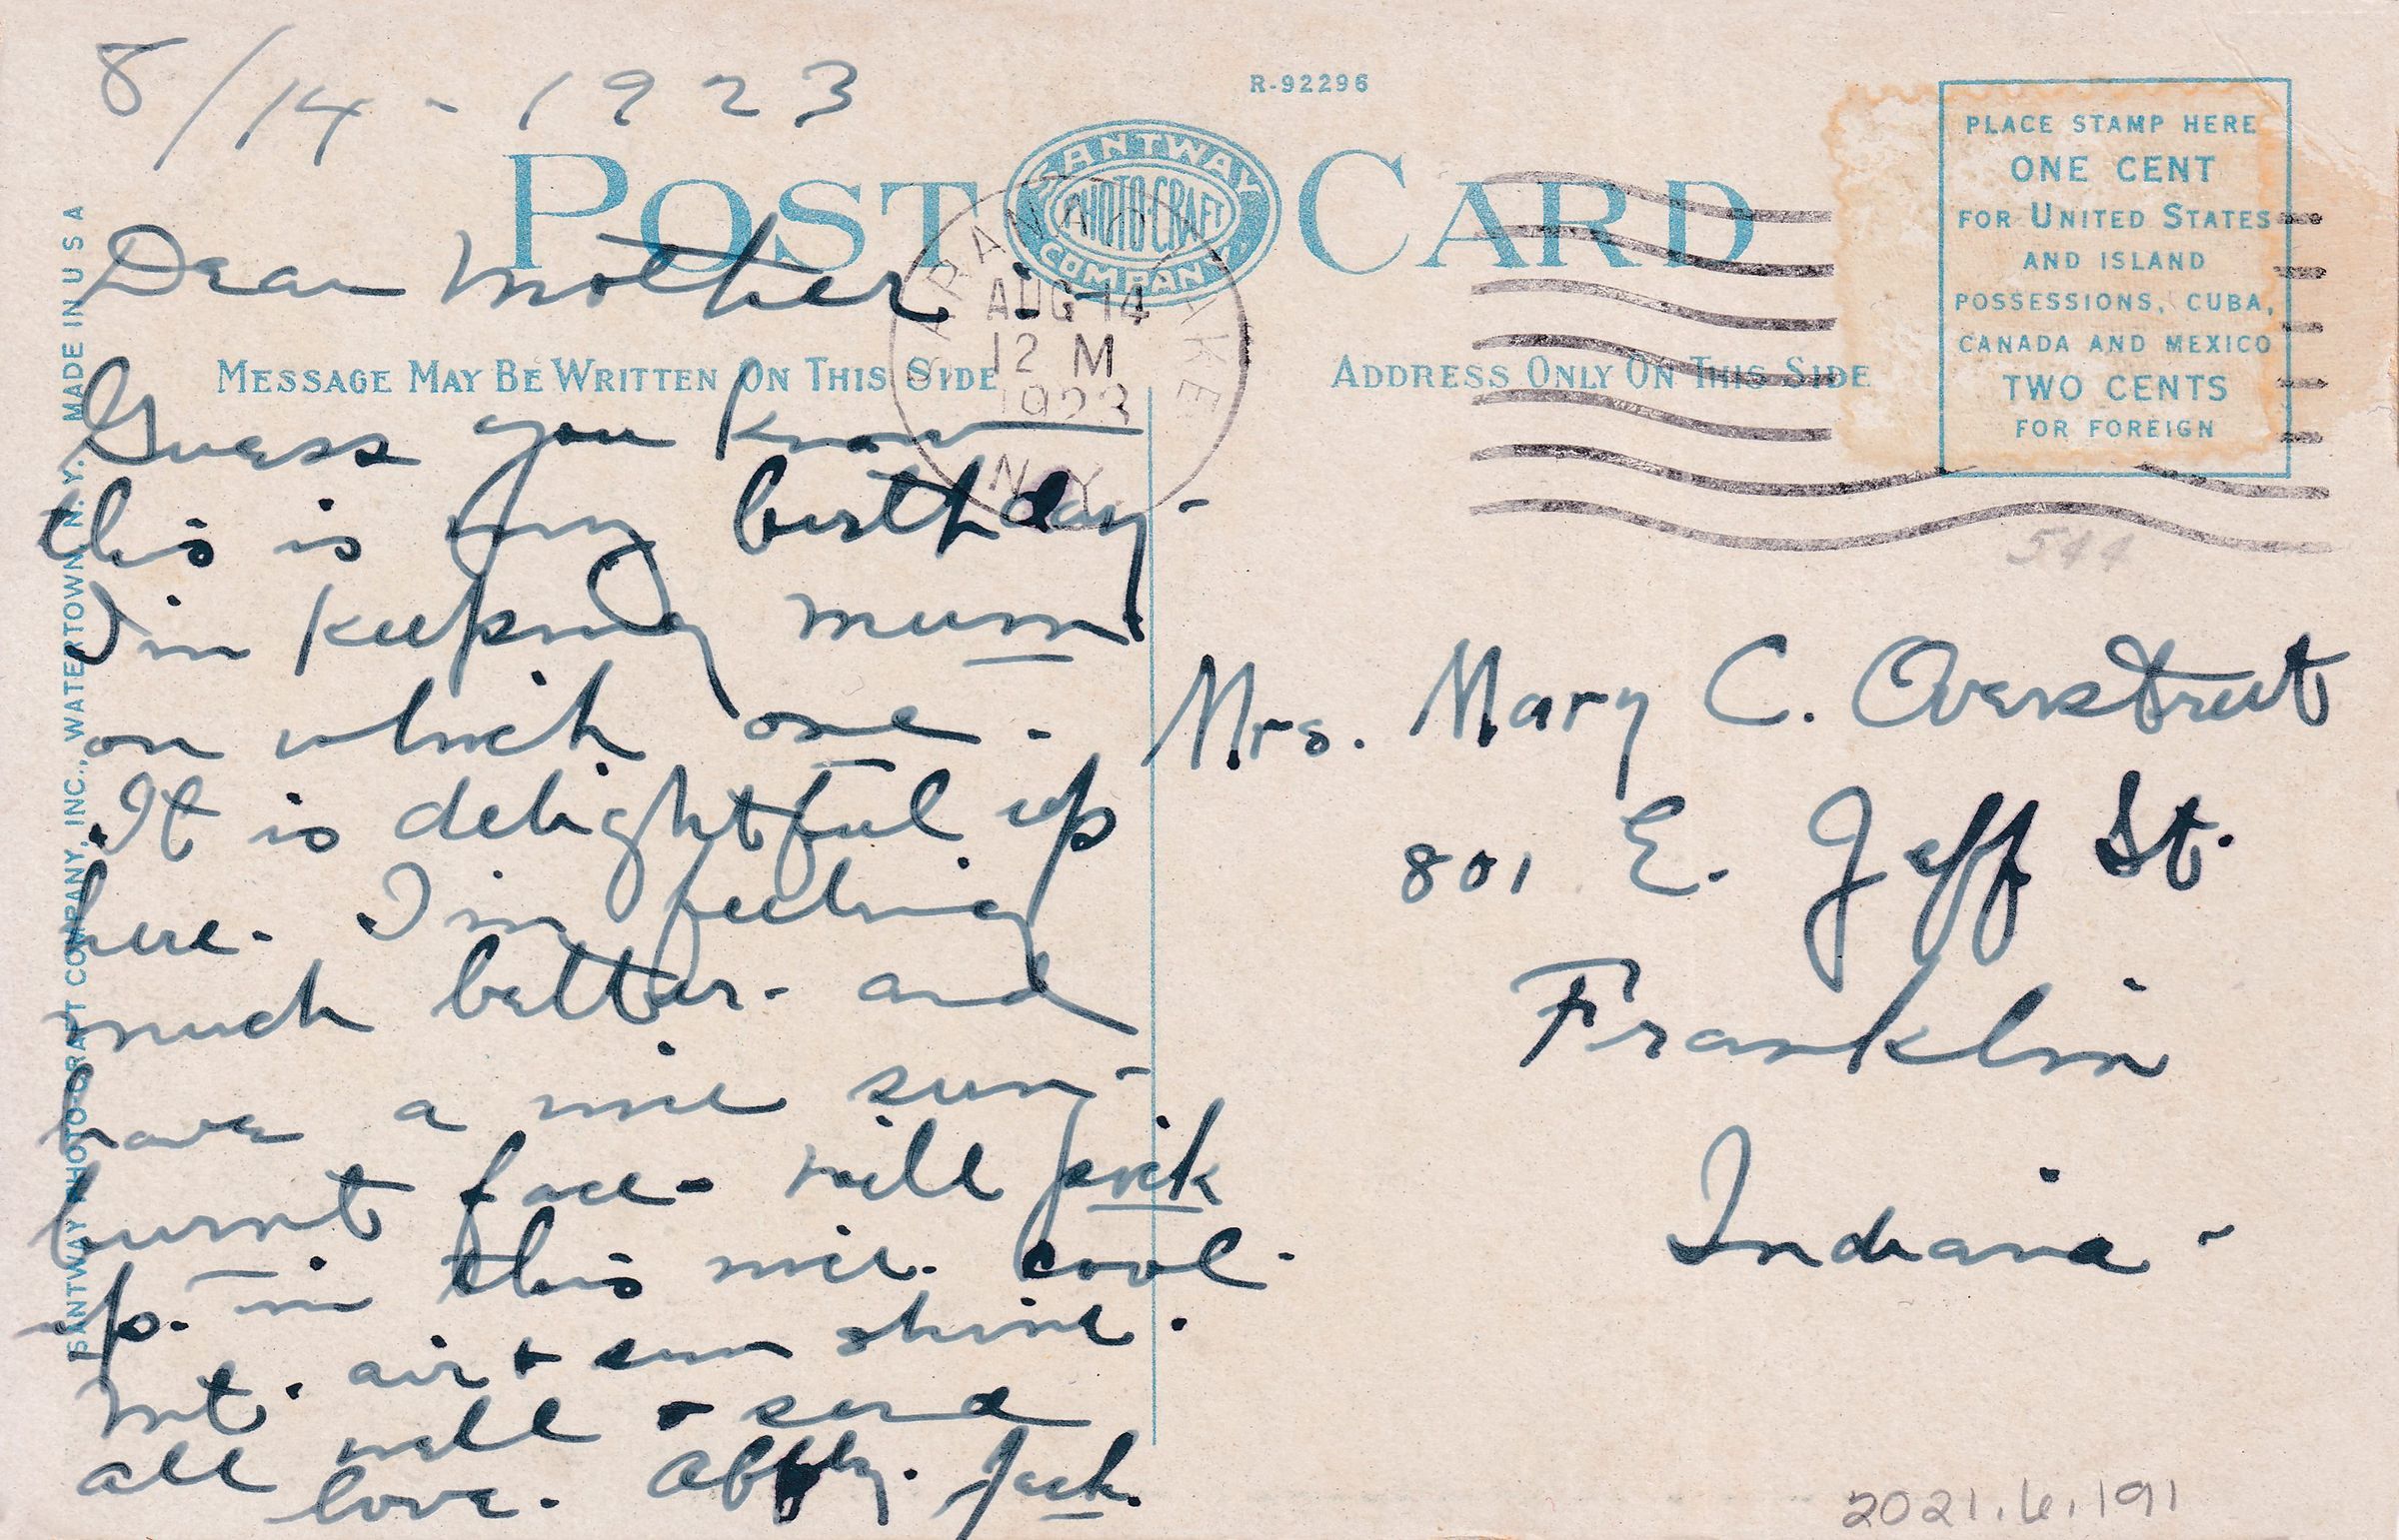 8/14 - 1923
R-92296
POST CARD
SANTWAY
PHOTO-CRAFT
COMPANY
PLACE STAMP HERE
ONE CENT
FOR UNITED STATES
AND ISLAND
POSSESSIONS, CUBA,
CANADA AND MEXICO
TWO CENTS
FOR FOREIGN
MESSAGE MAY BE WRITTEN ON THIS SIDE
ADDRESS ONLY ON THIS SIDE
SARANAC LAKE
AUG 14
12 M
1923
N.Y.
SANTWAY PHOTO-CRAFT COMPANY, INC., WATERTOWN, N.Y. MADE IN U S A
Dear Mother :
Guess you know
this is my birthday -
I'm keeping mum
on which one -
It is delightful up
here - I'm feeling
much better - and
have a nice sun -
burnt face - will pick
up - in this nice - cool -
mt. air + sun shine.
all well - send
love - Affly. Jack.
544
Mrs. Mary C. Overstreet
801 E. Jeff St.
Franklin
Indiana -
2021.6.191